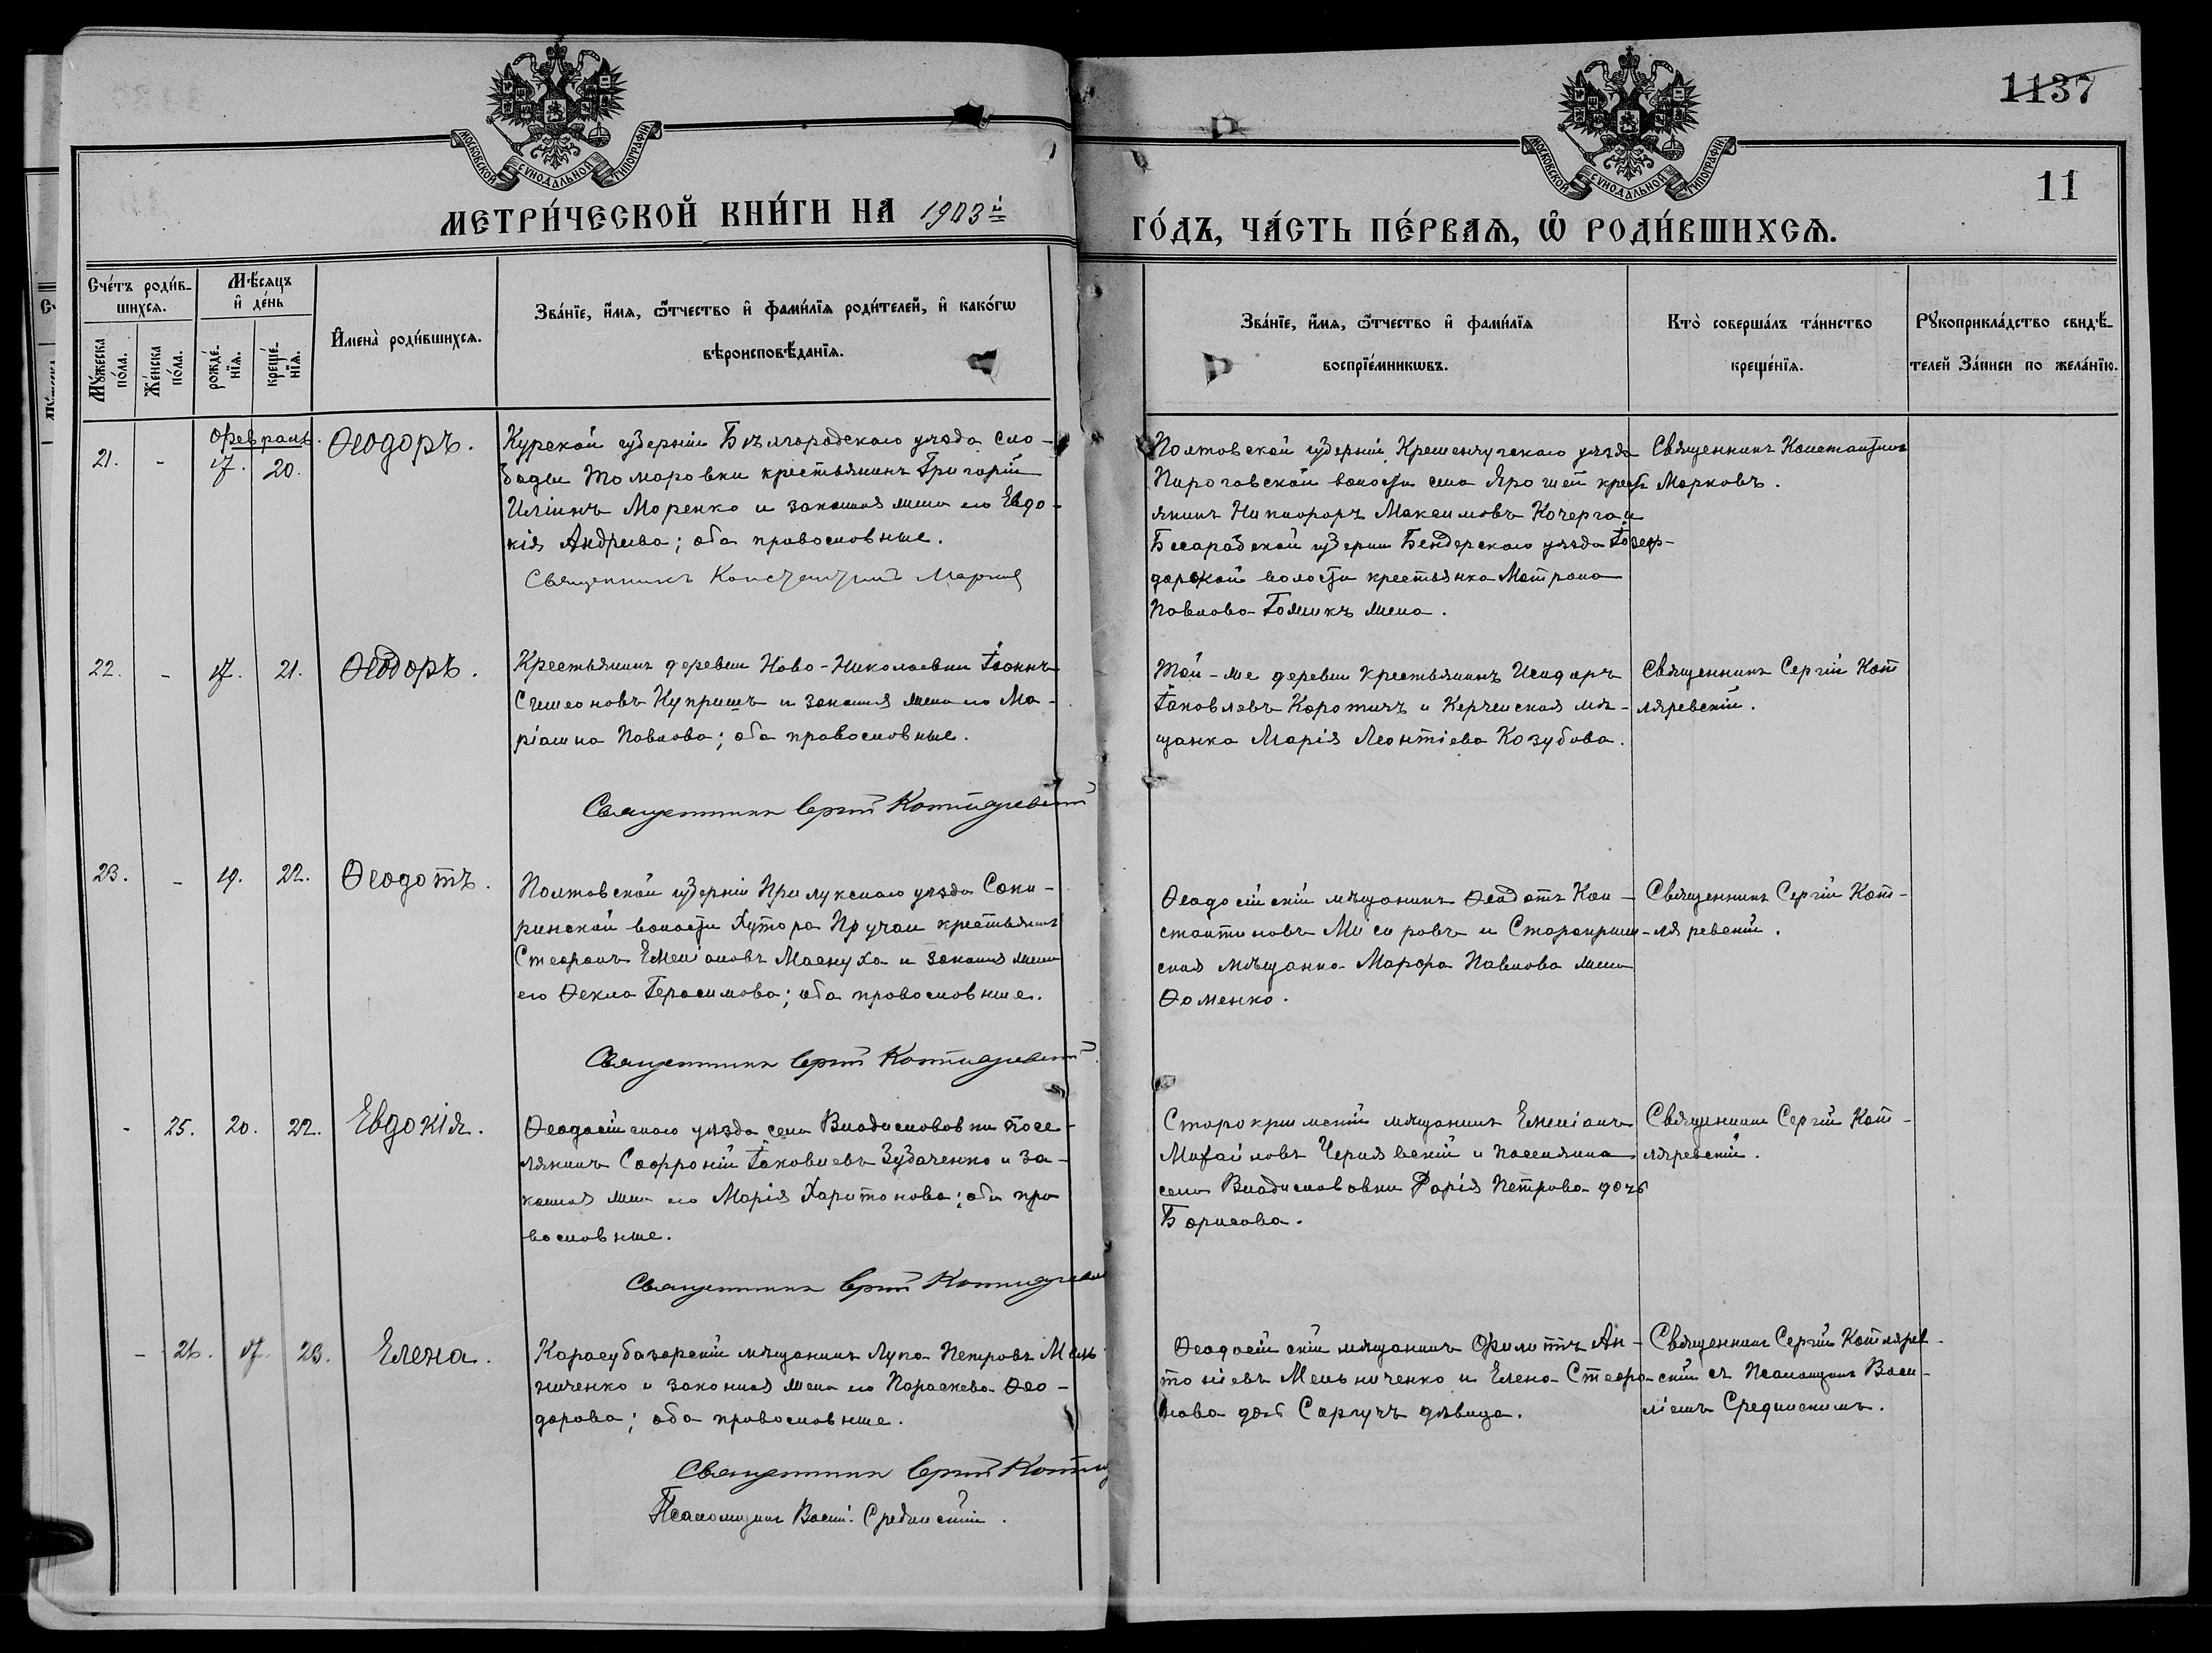 1137
11
МОСКОВСКОЙ СУНОДАЛЬНОЙ ТИПОГРАФІИ
МОСКОВСКОЙ СУНОДАЛЬНОЙ ТИПОГРАФІИ
МЕТРИ́ЧЕСКОЙ КНИ́ГИ НА 1903й
ГО́ДЪ, ЧА́СТЬ ПЕ́РВАѦ, Ѡ҆ РОДИ́ВШИХСѦ.
Сче́тъ роди́в-
шихсѧ.
Мѣ́сѧцъ
и҆ де́нь
И҆мена̀ роди́вшихсѧ.
Зва́нїе, и҆́мѧ, ѻ҆́тчество и҆ фами́лїѧ роди́телей, и҆ како́гѡ
вѣроисповѣ́данїѧ.
Мꙋ́жеска
по́ла.
Же́нска
по́ла.
рожде́-
нїѧ.
креще́-
нїѧ.
Зва́нїе, и҆́мѧ, ѻ҆́тчество и҆ фами́лїѧ
воспрїе́мникѡвъ.
Кто̀ соверша́лъ та́инство
креще́нїѧ.
Рꙋкоприкла́дство свидѣ́-
телей За́писи по жела́нїю.
21. - Февраль.
17. 20. Ѳеодоръ.
Курской губерніи Бѣлгородскаго уѣзда сло-
боды Томаровки крестьянинъ Григорій
Иліинъ Моренко и законная жена его Евдо-
кія Андреева; оба православные.
Священникъ Константинъ Марковъ
Полтовской губерніи, Кременчугскаго уѣзда
Пироговской волости села Ярошей крест
янинъ Никифоръ Максимовъ Кочерга и
Бесарабской губерніи Бендерскаго уѣзда
дарской волости крестьянка Матрона
Павлова жена.
Священникъ Константинъ
Марковъ.
22. - 17. 21. Ѳеодоръ.
Крестьянинъ деревни Ново-Николаевки Іоаннъ
Симеоновъ Купришъ и законная жена его Ма-
ріамна Павлова; оба православные.
Священникъ Сергій Котляревскій
Той-же деревни крестьянинъ Исидоръ
Іаковлевъ Коротичъ и Керченская мѣ-
щанка Марія Леонтіева Козубова.
Священникъ Сергій Кот
ляревскій.
23. - 19. 22. Ѳеодотъ.
Полтовской губерніи Прилукскаго уѣзда Соки-
ринской волости Хутора крестьянинъ
Стефанъ Емеліановъ Маснуха и законная жена
его Ѳекла Герасимова; оба православные.
Священникъ Сергій Котляревскій
Ѳеодосійскій мѣщанинъ Ѳеодотъ Кон-
стантиновъ Місировъ и Старокрым-
ская мѣщанка Марфа Павлова жена
Ѳоменко.
Священникъ Сергій Кот-
ляревскій.
- 25. 20. 22. Евдокія.
Ѳеодосійскаго уѣзда села Владиславовки посе-
лянинъ Софроній Іаковлевъ Зубаченко и за-
конная жена его Марія Харитонова; оба пра
вославные.
Священникъ Сергій Котляревскій
Старокрымскій мѣщанинъ Емеліанъ
Михаиловъ Чернявскій и поселянка
села Владиславовки Дарія Петрова дочь
Борисова.
Священникъ Сергій Кот-
ляревскій.
- 26. 17. 23. Елена.
Карасубазарскій мѣщанинъ Лука Петровъ Мель
ниченко и законная жена его Параскева Ѳео-
дорова; оба православные.
Священникъ Сергій Котля
Псаломщикъ Васил. Срединскій.
Ѳеодосійскій мѣщанинъ Филиппъ Ан-
тоніевъ Мельниченко и Елена Стефа-
нова дочь Саргучъ дѣвица.
Священникъ Сергій Котлярев-
скій съ Псаломщик. Васи-
ліемъ Срединскимъ.